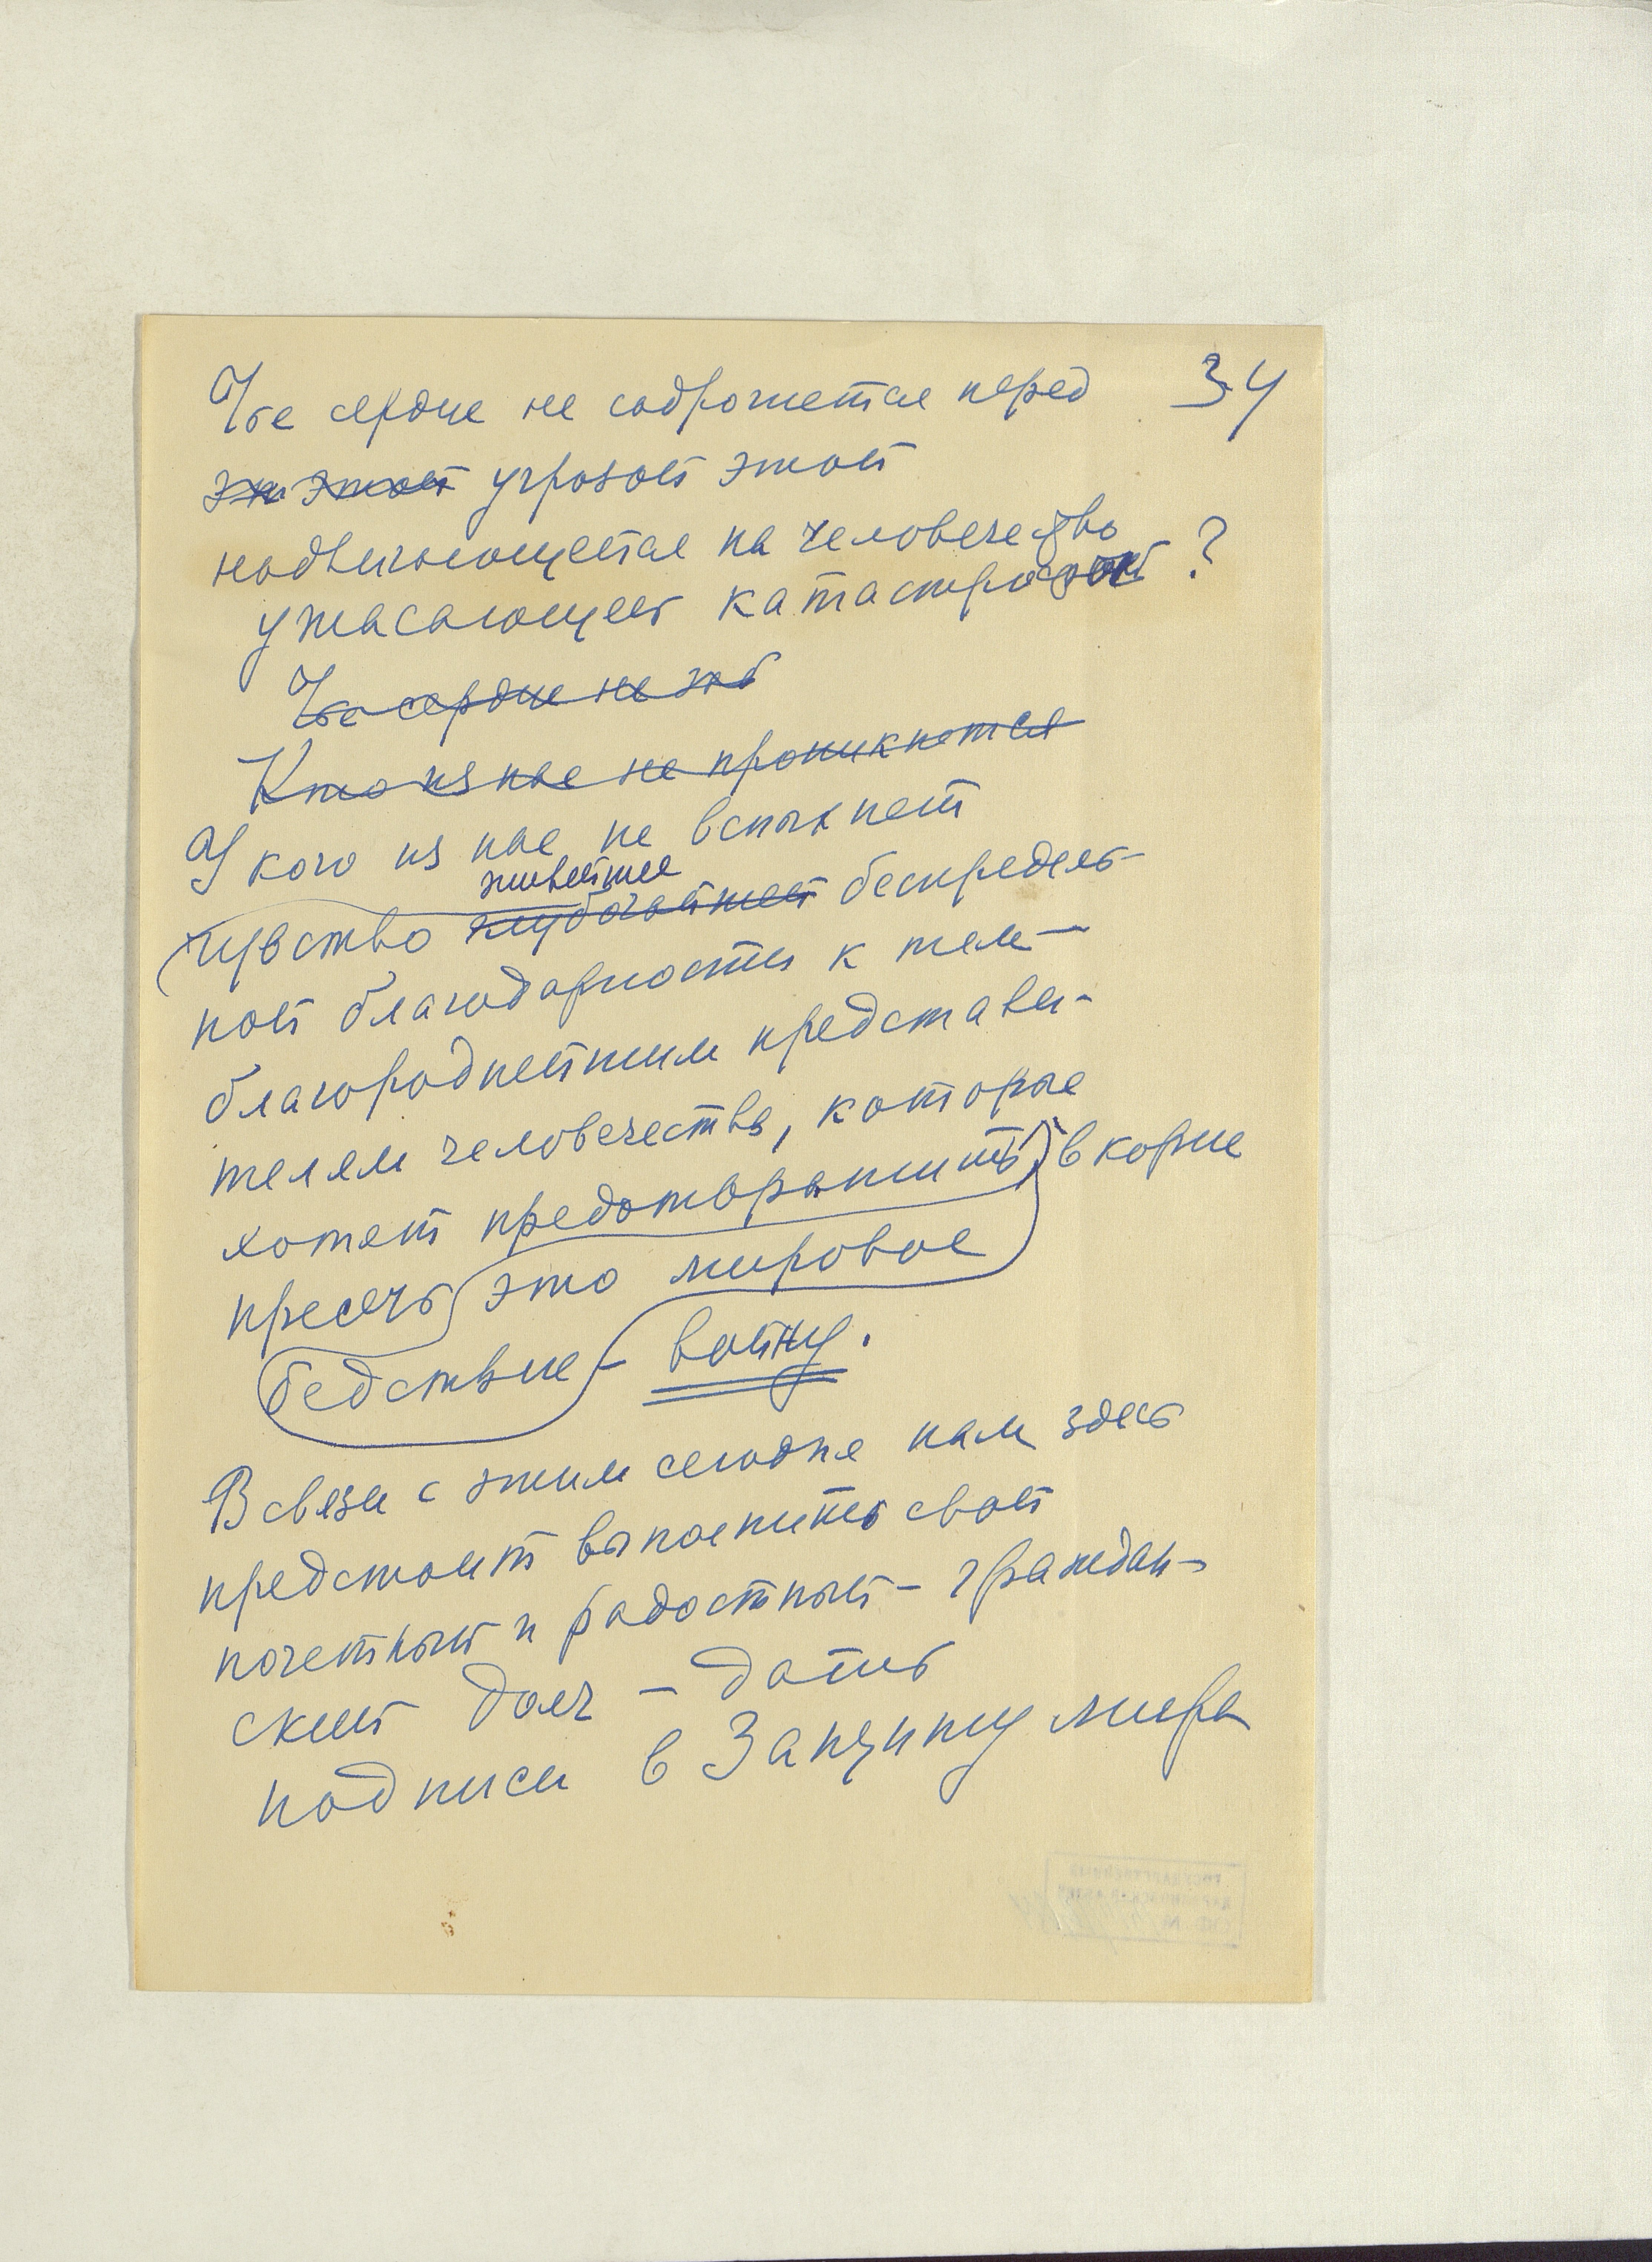 34
Чье сердце не содрожется перед
эти этой угрозой этой
надвигающейся на человечество
ужасающей катастрофой ?
Чье сердце не
Кто из нас не проникнется
У кого из нас не вспыхнет
живейшее
чувство глубочайшей беспредель-
ной благодарности к тем—
благороднейшим представи-
телям человечества, которые
хотят предотвратить в корне
пресечь это мировое
бедствие – войну.
В связи с этим сегодня нам здесь
предстоит выполнить свой
почетный и радостный – граждан-
ский долг – дать
подписи в Защиту мира